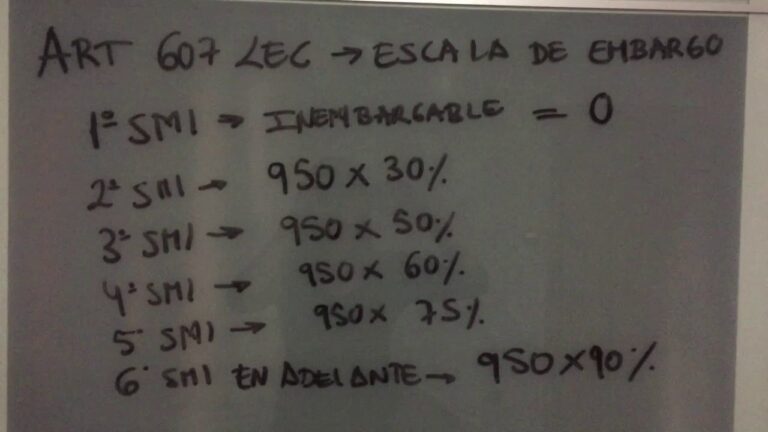 ART 607 LEC → ESCALA DE EMBARGO
1º SMI → INEMBARGABLE = 0
2º SMI → 950 x 30%
3º SMI → 950 x 50%
4º SMI → 950 x 60%
5º SMI → 950 x 75%
6º SMI EN ADELANTE → 950 x 90%